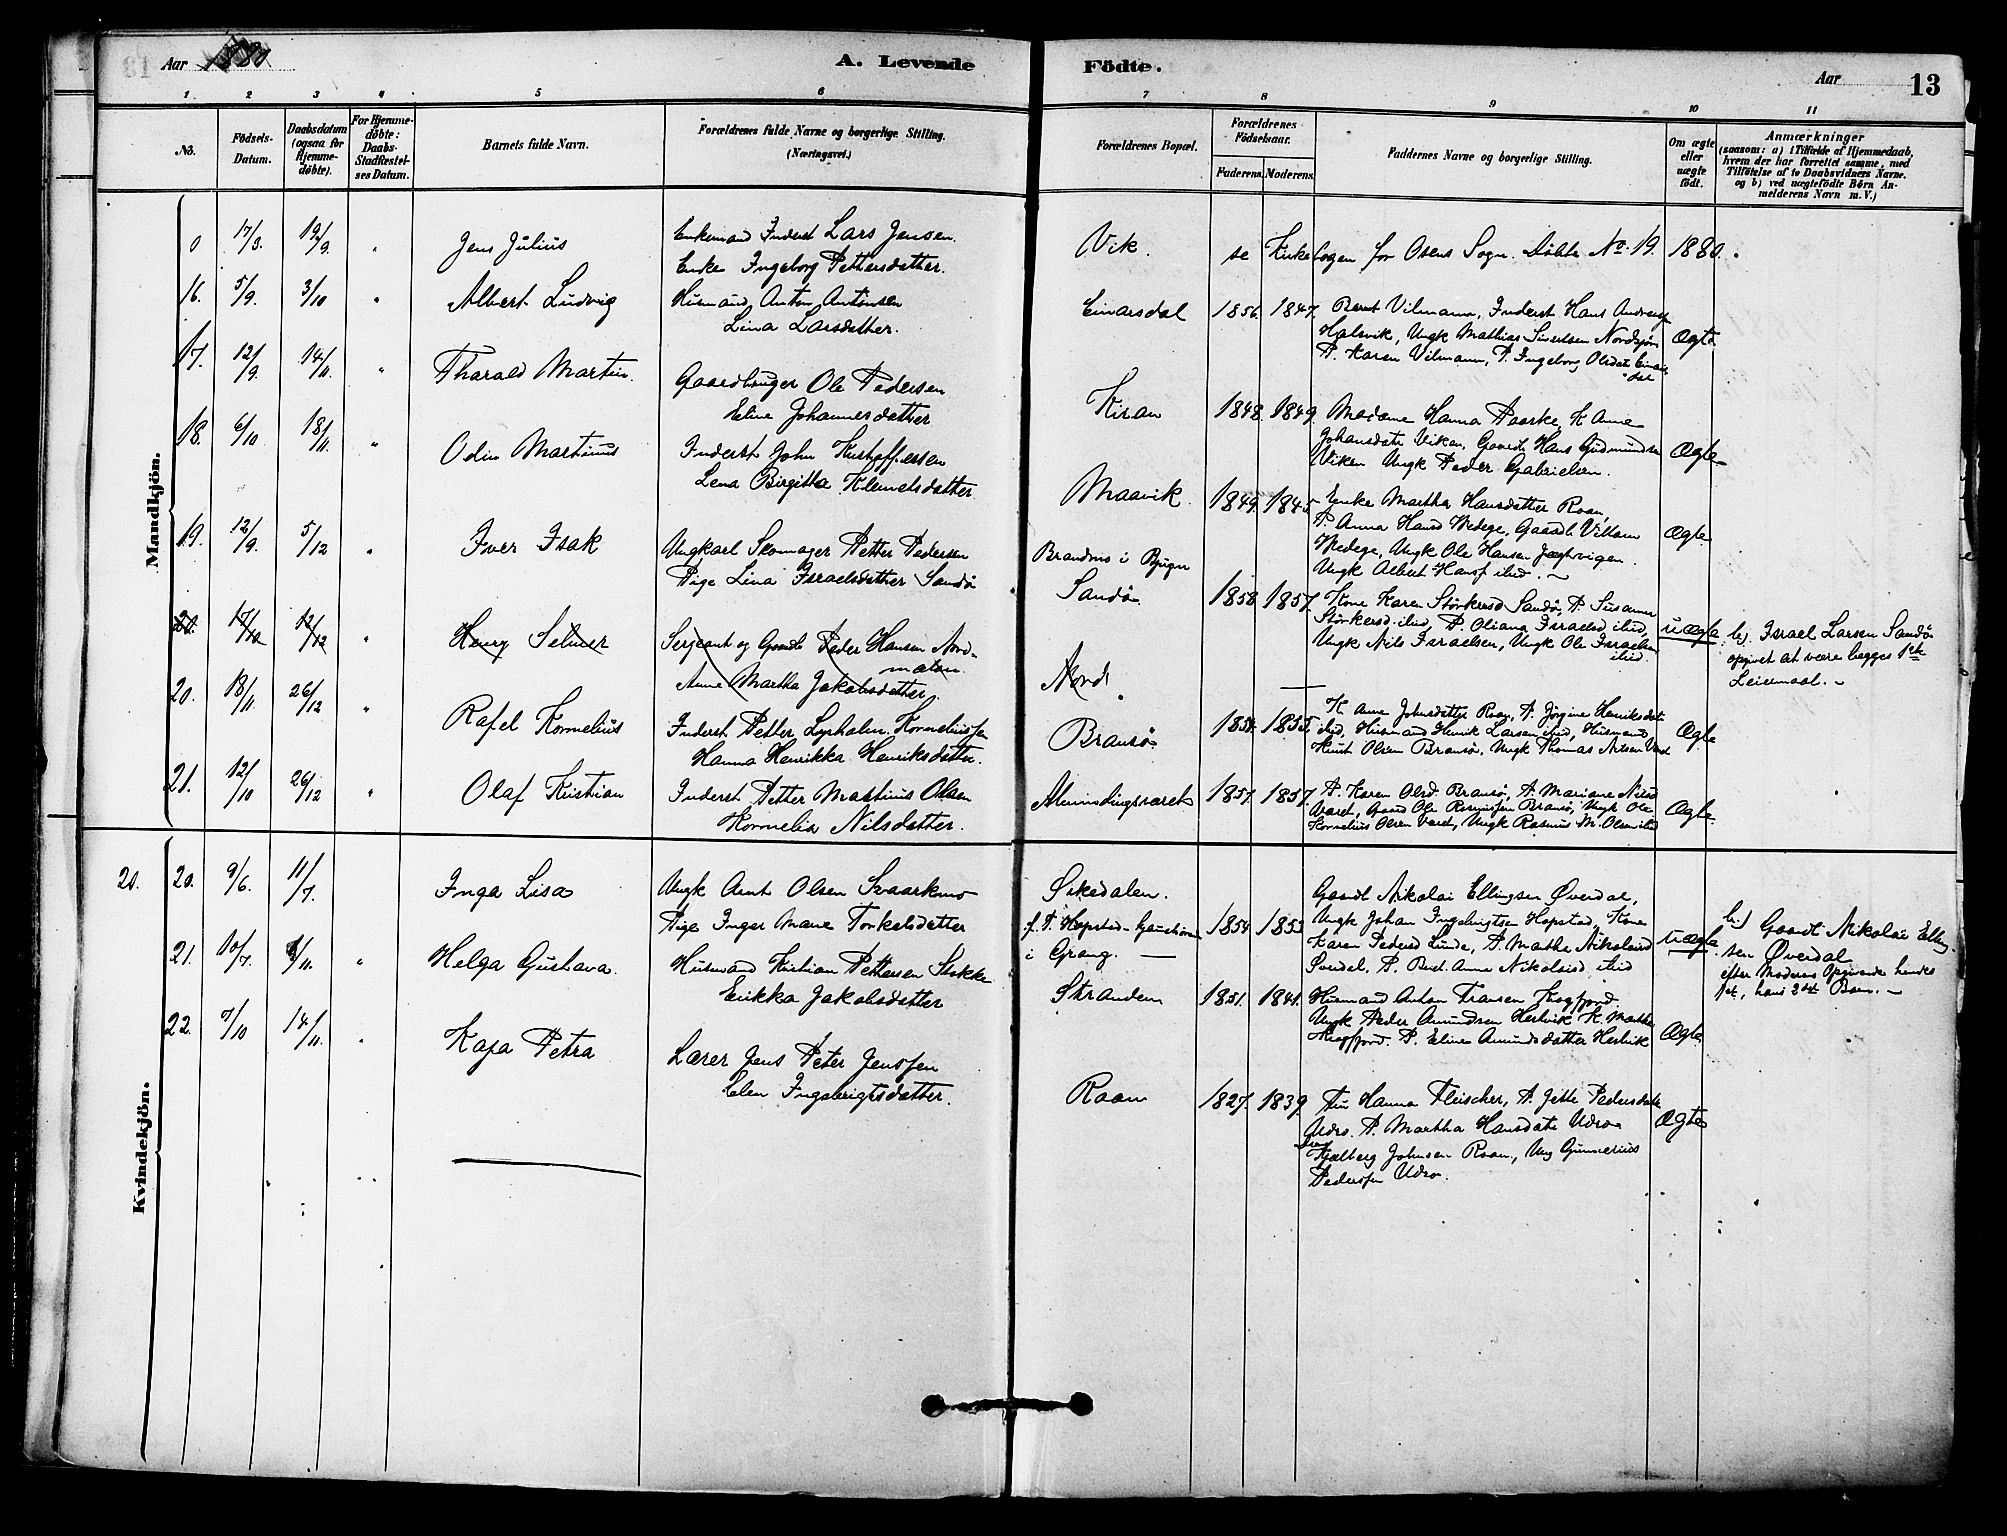 Aar 1880
A. Levende
Födte.
Aar
13
1. 2 3 4 5 6 7 8 9 10 11
No.
Födsels-Datum.
Daabsdatum (ogsaa for Hjemme-døbte).
For Hjemme-døbte: Daabs-Stadfæstel-ses Datum.
Barnets fulde Navn.
Forældrenes fulde Navne og borgerlige Stilling.
(Næringsvei.)
Forældrenes Bopæl.
Forældrenes Födselsaar.
Faderens. Moderens.
Faddernes Navne og borgerlige Stilling.
Om ægte eller uægte födt.
Anmærkninger
(saasom: a) i Tilfælde af Hjemmedaab,
hvem der har forrettet samme, med
Tilføielse af to Daabsvidners Navne.
og b) ved uægtefödte Børn An-
melderens Navn m. V.)
Mandkjön.
0 17/3. 19/9 " Jens Julius
Enkemand Inderst Lars Jensen.
Enke Ingeborg Pettersdatter.
Vik. se Kirkebogen for Osens Sogn. Døbte No. 19. 1880.
16. 5/9. 3/10 " Albert Ludvig
Husmand Anton Antonsen
Lina Larsdatter.
Einarsdal 1856. 1847. Bernt Vilmann, Inderst Hans Andreas
Halsvik, Ungk Mathias Sivertsen Nordsjøn
P. Karen Vilmann, P. Ingeborg Olsdat Einars
dal
Ægte.
17. 12/9 14/11. " Tharald Martin.
Gaardbruger Ole Pedersen
Eline Johannesdatter
Kiran 1848. 1849. Madame Hanna Paaske, K Anne
Johansdatr Viken, Gaardb Hans Gudmundsen
Viken Ungk Peder Gabrielsen.
Ægte
18. 6/10 18/11. " Odin Martinus
Inderst John Kristoffersen
Lena Birgitta Klemetsdatter
Maavik 1849. 1845. Enke Martha Hansdatter Roan,
P. Anna Hansd Hedege, Gaardb Villum
Hedege, Ungk Ole Hansen Jægtvigen.
Ungk Albert Hansf ibid. ~
Ægte
19. 12/9. 5/12 " Iver Isak
Ungkarl Skomager Petter Pedersen
Pige Lina Israelsdatter Sandö
Brandsnes i Bjugn
Sandö. 1858 1857. Kone Karen Størkersd Sandö, P. Susanna
Størkersd. ibid, P. Oliana Israelsd ibid,
Ungk Nils Israelsen, Ungk Ole Israelsen
ibid.
uægte
b.) Israel Larsen Sandö
opgivet at være begges 1ste
Leiermaal. ~
20. 17/10 12/12 " Henry Selmer
Serjeant og Gaardb Peder Hansen Nord-
metan.
Anne Martha Jakobsdatter.
Nord
20. 18/11. 26/12 " Rafel Kornelius
Inderst Petter Lyshalm Korneliussen
Hanna Henrikka Henriksdatter.
Bransö 1854. 1855. K. Anne Johnsdatter Roan, P. Jørgine Henriksdatr
ibid, Husmand Henrik Larsen ibid, Husmand
Knut Olsen Bransö, Ungk Thomas Nilsen Varet
Ægte
21. 12/10 26/12 " Olaf Kristian
Inderst Petter Martinus Olsen
Kornelia Nilsdatter.
Almindingsvaret 1857. 1857. P. Karen Olsd. Bransö, P. Mariane Nilsd
Varet, Gaard Ole Rasmussen Bransö, Ungk Ole
Kornelius Olsen Varet, Ungk Rasmus M. Olsen ibid
Ægte.
Kvindekjön.
20. 20. 9/6. 11/7. Inga Lisa
Ungk Arnt Olsen Svaarkmo
Pige Inger Marie Torkelsdatter
Ørkedalen.
f. T. Hopstad
i Grong. — 1854 1853 Gaardb Nikolai Ellingsen Øverdal,
Ungk Johan Ingebrigtsen Hopstad, Kone
Karen Pedersd Lunde, P. Mathe Nikolaisd
Øverdal. P. Anna Nikolaisd. ibid
uægte
b.) Gaardb Nikolai Elling-
sen Øverdal
efter Moderens Opgivende hendes
1ste, hans 2det Barn. ~
21. 10/7. /11. " Helga Gustava.
Husmand Kristian Pettersen Stokke
Erikka Jakobsdatter
Stranden 1851. 1841. Husmand Anton Fransen Skogfjord.
Ungk Peder Amundsen Hestvik K. Marthe
Skogfjord. P. Eline Amundsdatter Hestvik
Ægte.
22. 7/10 14/11. Kaja Petra
Lærer Jens Peter Jenssen
Elen Ingebrigtsdatter.
Roan 1827. 1839. Fru Hanna Fleischer, P. Jette Pedersdatr
Udro. P. Martha Hansdatr Udro
Hjalberg Johnsen Roan, Ung Gunnerius
Pedersen Udro.
Ægte